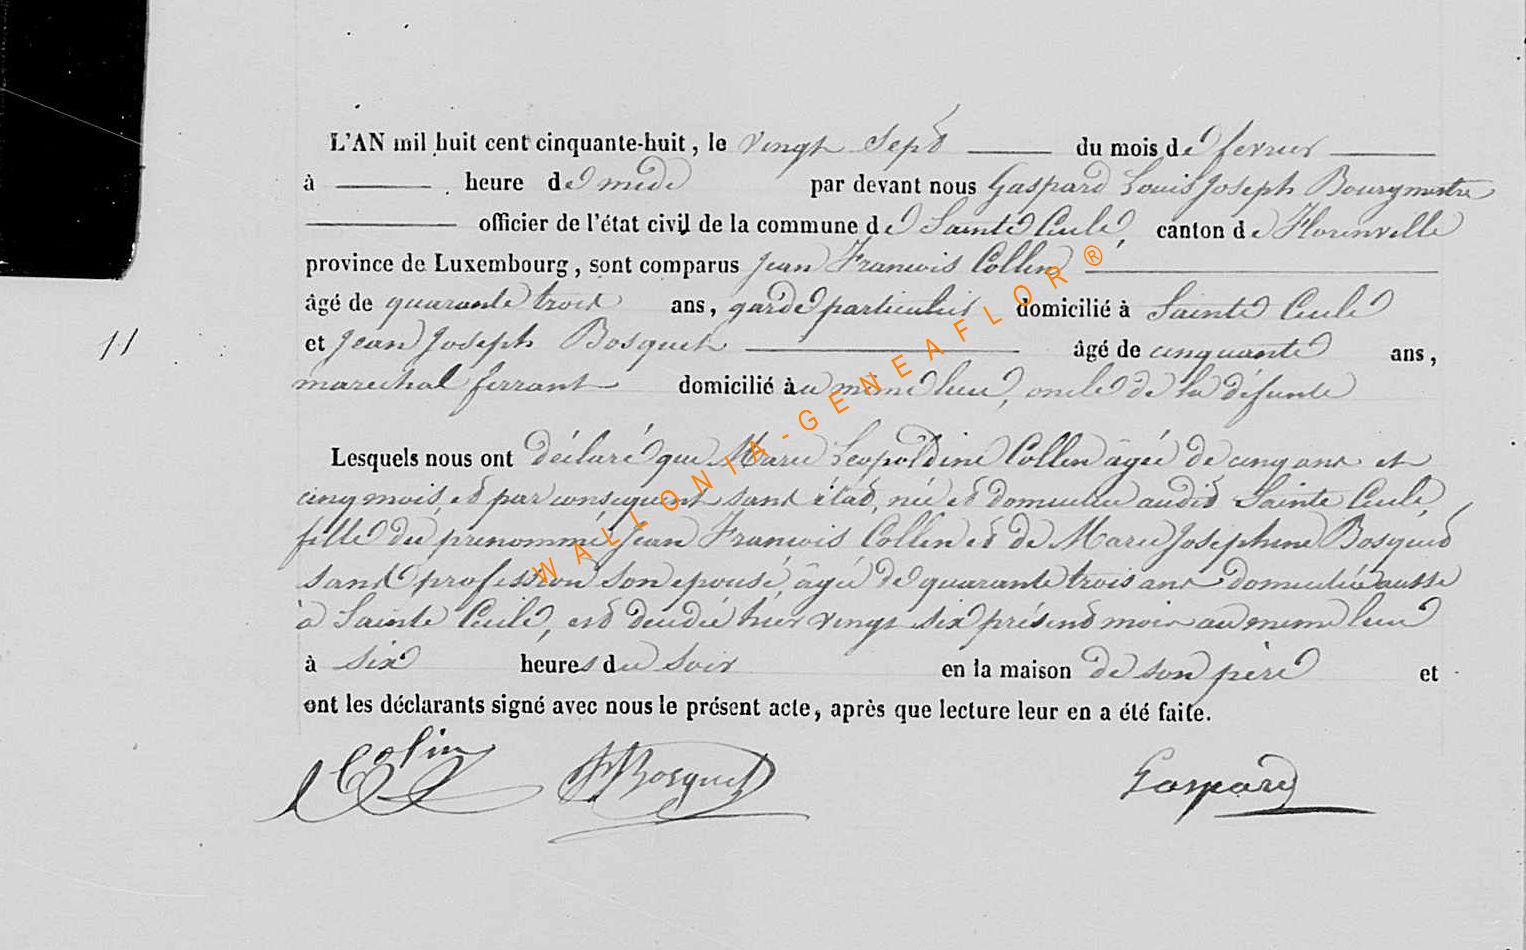 L'AN mil huit cent cinquante-huit, le vingt sept du mois de fevrier
à heure de midi par devant nous Gaspard Louis Joseph Bourgmestre
officier de l'état civil de la commune de Sainte Cecile, canton de Florenville
province de Luxembourg, sont comparus Jean Francois Collin
âgé de quarante trois ans, garde particulier domicilié à Sainte Cecile
11
et Jean Joseph Bosquet âgé de cinquante ans,
marechal ferrant domicilié au même lieu, oncle de la défunte
Lesquels nous ont déclaré que Marie Leopoldine Collin âgée de cinq ans et
cinq mois, et par consequent sans état, née et domiciliée audit Sainte Cecile,
fille du prenommé Jean Francois Collin et de Marie Josephine Bosquet
sans profession son epouse, âgée de quarante trois ans domiciliée aussi
à Sainte Cecile, est decedée hier vingt six présent mois au meme lieu
à six heures du soir en la maison de son père et
ont les déclarants signé avec nous le présent acte, après que lecture leur en a été faite.
Colin JJBosquet Gaspard
WALLONIA-GENEAFLOR®